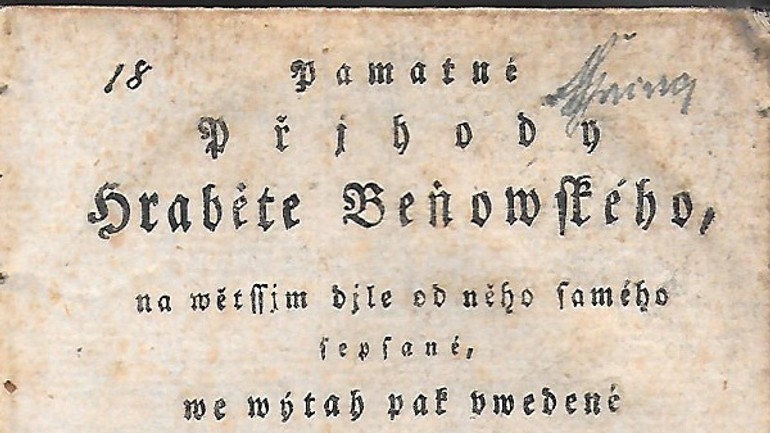 18
Pamatné
Přjhody
Hraběte Beňowſkého,
na wětſſjm djle od něho ſamého
ſepſané,
we wýtah pak vwedené